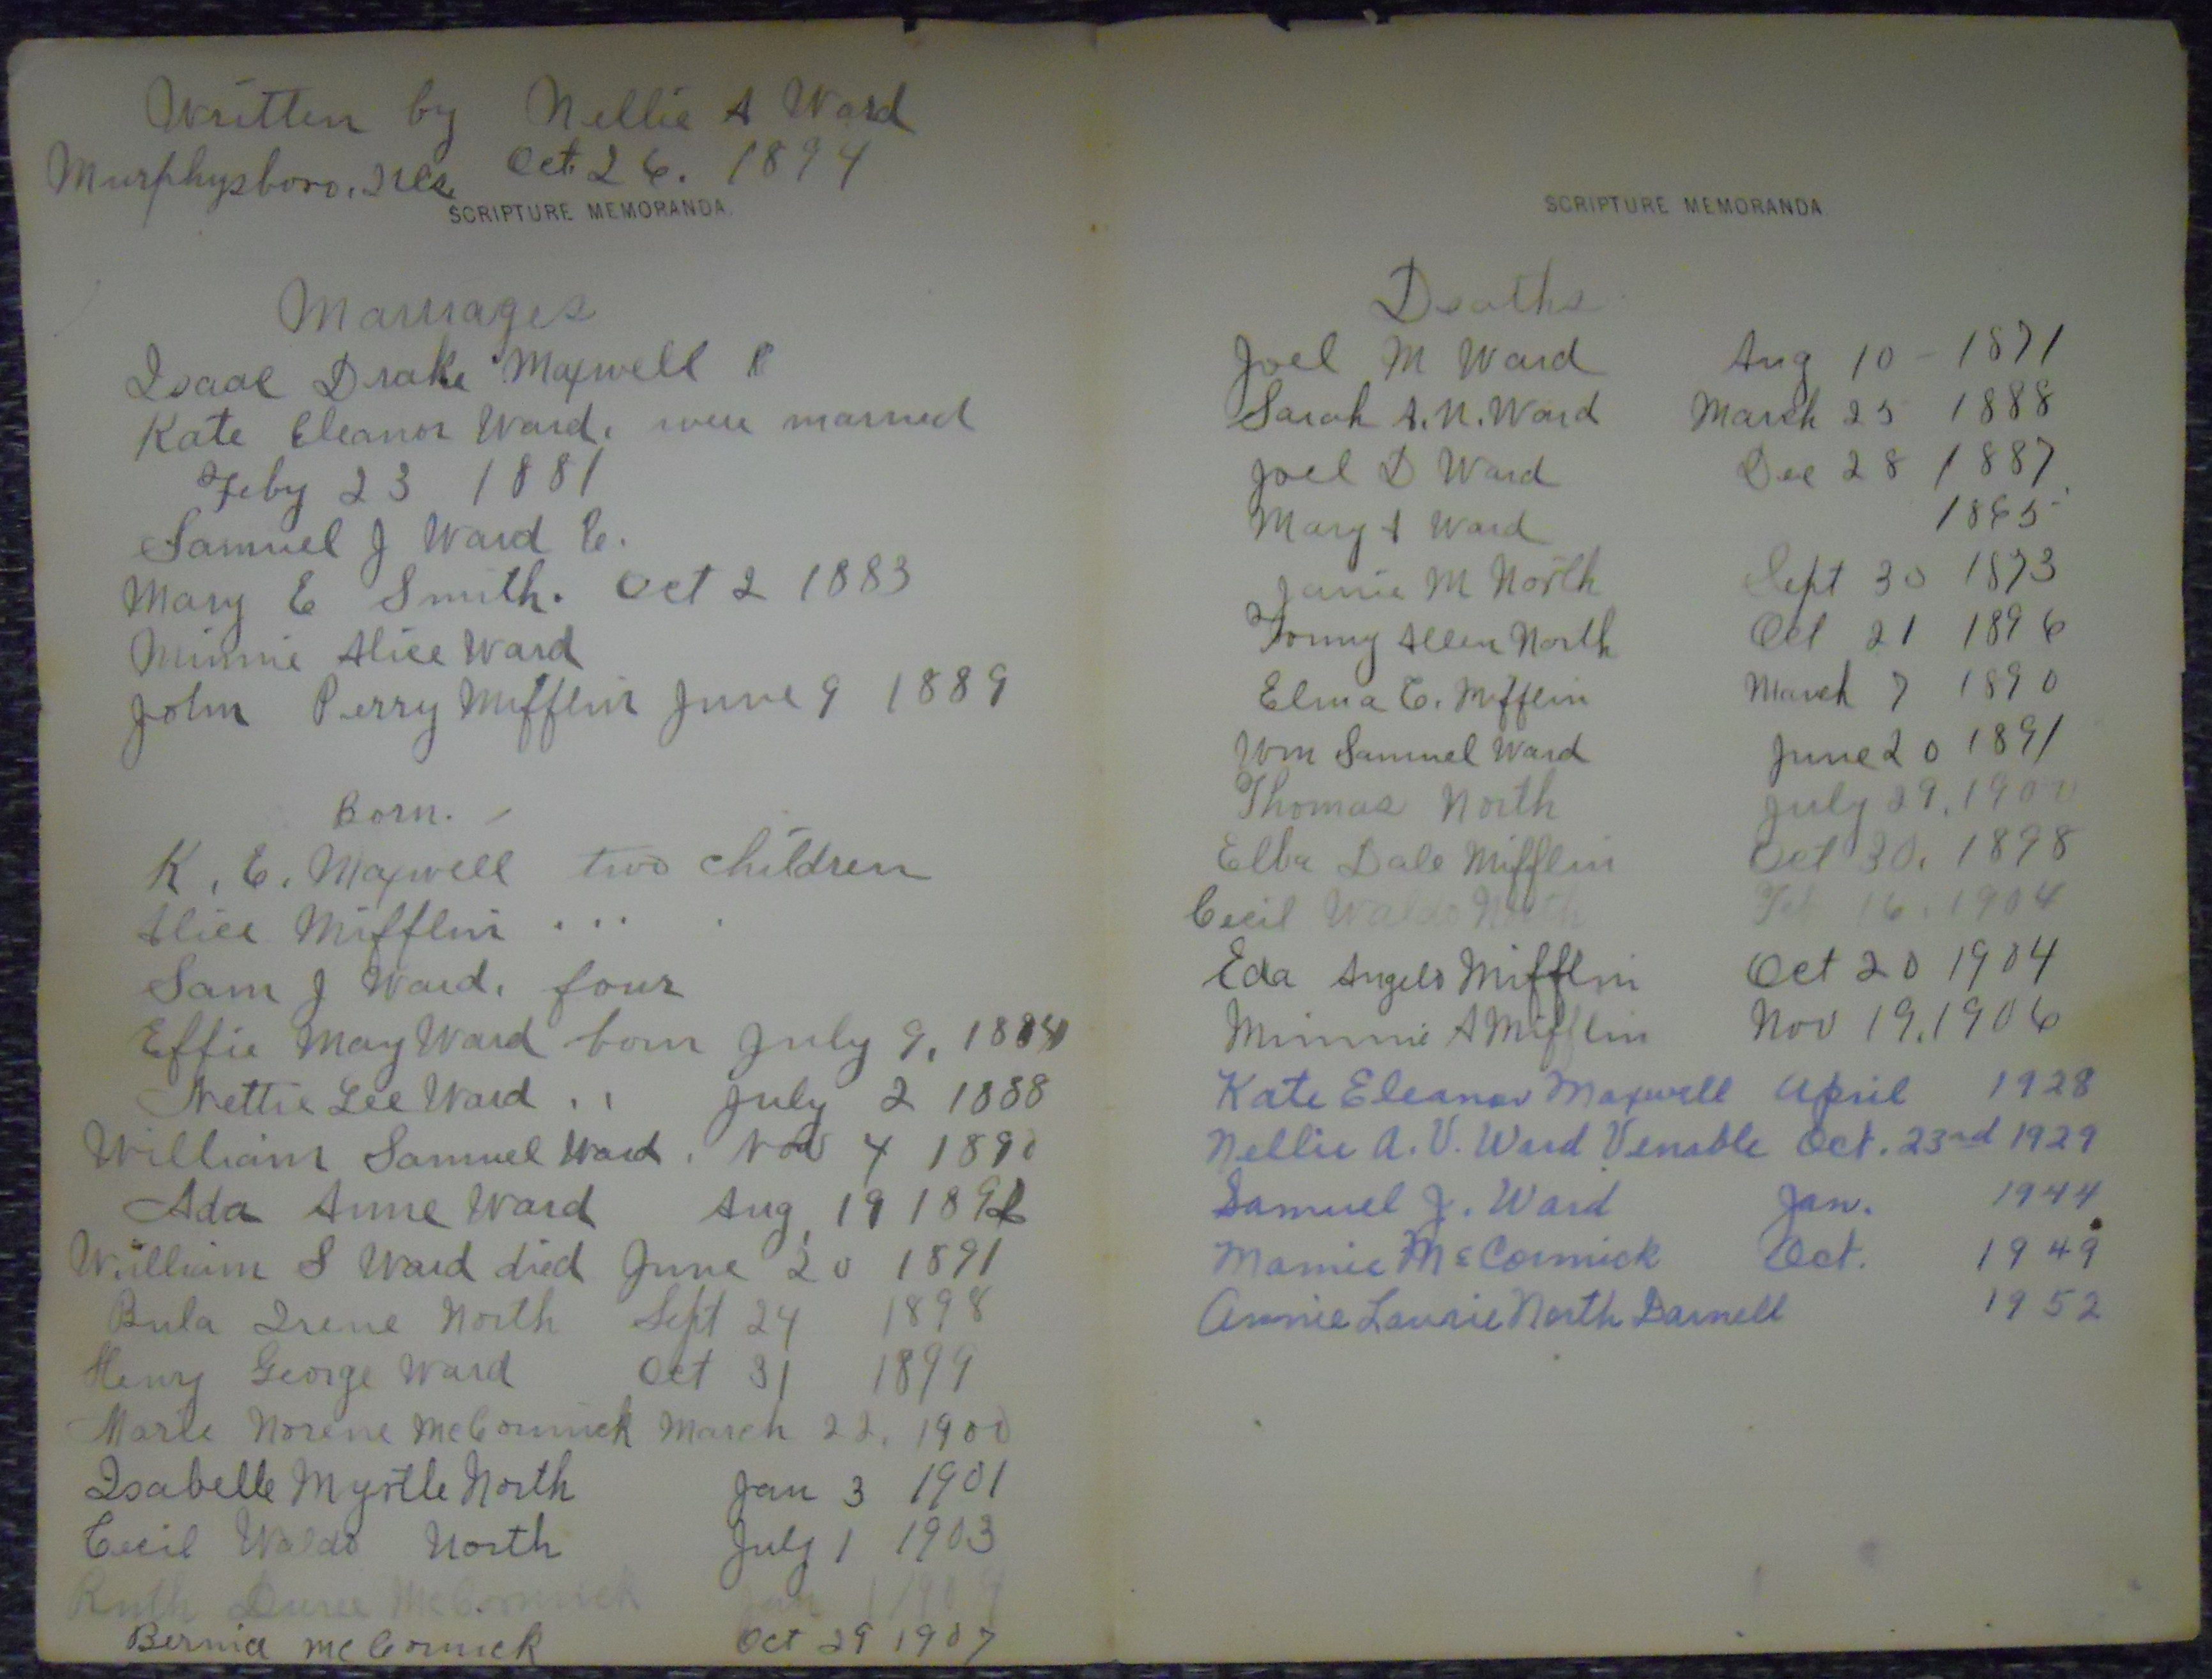 Written by Nellie A Ward
Murphysboro, Ills. Oct. 26. 1894
SCRIPTURE MEMORANDA.
Marriages
Isaac Drake Maxwell &
Kate Eleanor Ward. were married
Feby 23 1881
Samuel J Ward &.
Mary E Smith. Oct 2 1883
Minnie Alice Ward
John Perry Mifflin June 9 1889
Born.
K. E. Maxwell two children
Alice Mifflin . . . .
Sam J Ward. four
Effie May Ward born July 9, 1884
Nettie Lee Ward . . July 2 1888
William Samuel Ward. Nov 4 1890
Ada Anne Ward Aug. 19
William S Ward died June 20 1891
Bula Irene North Sept 24 1898
Henry George Ward Oct 31 1899
Marie Norene McCormick March 22. 1900
Isabelle Myrtle North Jan 3 1901
Cecil Waldo North July 1 1903
Ruth McCormick Jan 1
Bernice McCormick Oct 29 1907
SCRIPTURE MEMORANDA
Deaths
Joel M Ward Aug 10 - 1871
Sarah A. N. Ward March 25 1888
Joel D Ward Dec 28 1887
Mary A Ward 1865
Janie M North Sept 30 1873
Tommy Allen North Oct 21 1896
Elma C. Mifflin March 7 1890
Wm Samuel Ward June 20 1891
Thomas North July 29. 1900
Elba Dale Mifflin Oct 30. 1898
Cecil Waldo North Feb 16. 1904
Eda Angelo Mifflin Oct 20 1904
Minnie A Mifflin Nov 19. 1906
Kate Eleanor Maxwell April 1928
Nellie A. V. Ward Venable Oct. 23rd 1929
Samuel J. Ward Jan. 1944
Mamie McCormick Oct. 1949
Annie Laurie North Darnell 1952